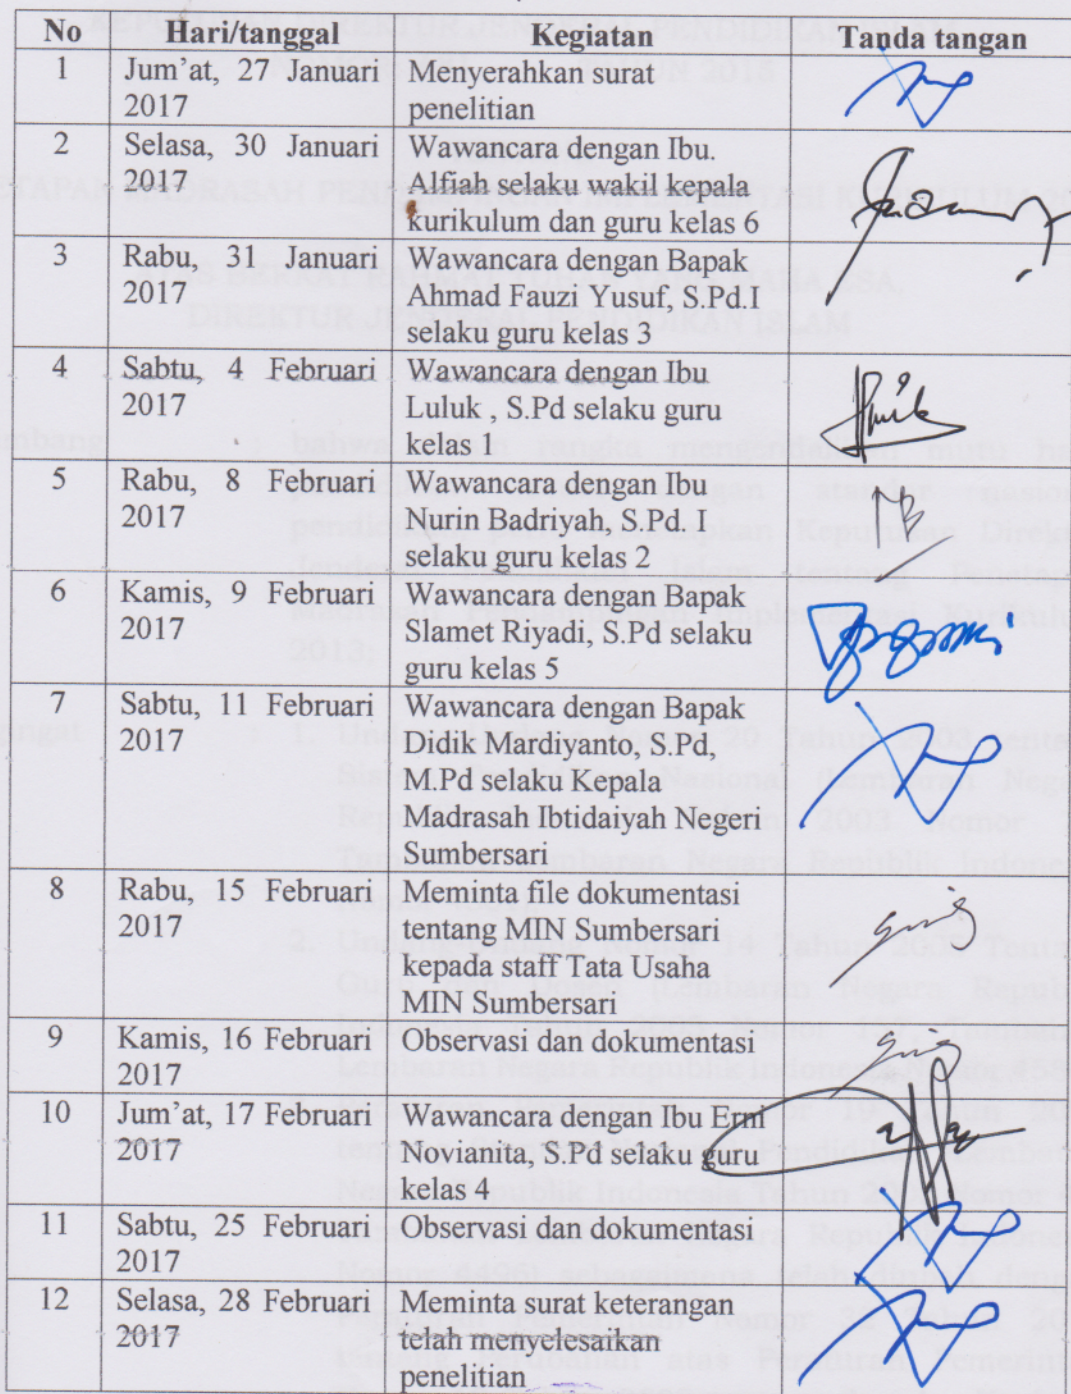 No Hari/tanggal Kegiatan Tanda tangan
1 Jum'at, 27 Januari Menyerahkan surat
2017 penelitian
2 Selasa, 30 Januari Wawancara dengan Ibu.
2017 Alfiah selaku wakil kepala
kurikulum dan guru kelas 6
3 Rabu, 31 Januari Wawancara dengan Bapak
2017 Ahmad Fauzi Yusuf, S.Pd.I
selaku guru kelas 3
4 Sabtu, 4 Februari Wawancara dengan Ibu
2017 Luluk , S.Pd selaku guru
kelas 1
5 Rabu, 8 Februari Wawancara dengan Ibu
2017 Nurin Badriyah, S.Pd. I
selaku guru kelas 2
6 Kamis, 9 Februari Wawancara dengan Bapak
2017 Slamet Riyadi, S.Pd selaku
guru kelas 5
7 Sabtu, 11 Februari Wawancara dengan Bapak
2017 Didik Mardiyanto, S.Pd,
M.Pd selaku Kepala
Madrasah Ibtidaiyah Negeri
Sumbersari
8 Rabu, 15 Februari Meminta file dokumentasi
2017 tentang MIN Sumbersari
kepada staff Tata Usaha
MIN Sumbersari
9 Kamis, 16 Februari Observasi dan dokumentasi
2017
10 Jum'at, 17 Februari Wawancara dengan Ibu Erni
2017 Novianita, S.Pd selaku guru
kelas 4
11 Sabtu, 25 Februari Observasi dan dokumentasi
2017
12 Selasa, 28 Februari Meminta surat keterangan
2017 telah menyelesaikan
penelitian